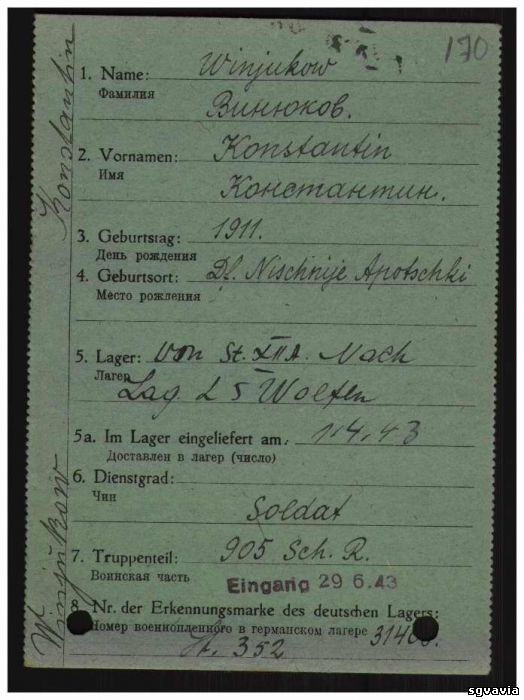 170
1. Name: Winjukow
Фамилия
Винюков.
2. Vornamen: Konstantin
Имя
Константин.
3. Geburtstag: 1911.
День рождения
4. Geburtsort: Df. Nischnije Apotschki
Место рождения
5. Lager: von St. XII A. Nach
Лагер
Lag. L 5 Wolfen
5a. Im Lager eingeliefert am: 1.4.43
Доставлен в лагер (число)
6. Dienstgrad:
Чин
Soldat
7. Truppenteil: 905 Sch. R.
Воинская часть
Eingang 29 6.43
8. Nr. der Erkennungsmarke des deutschen Lagers:
Номер военнопленного в германском лагере
352
Winjukow Konstantin
sgvavia